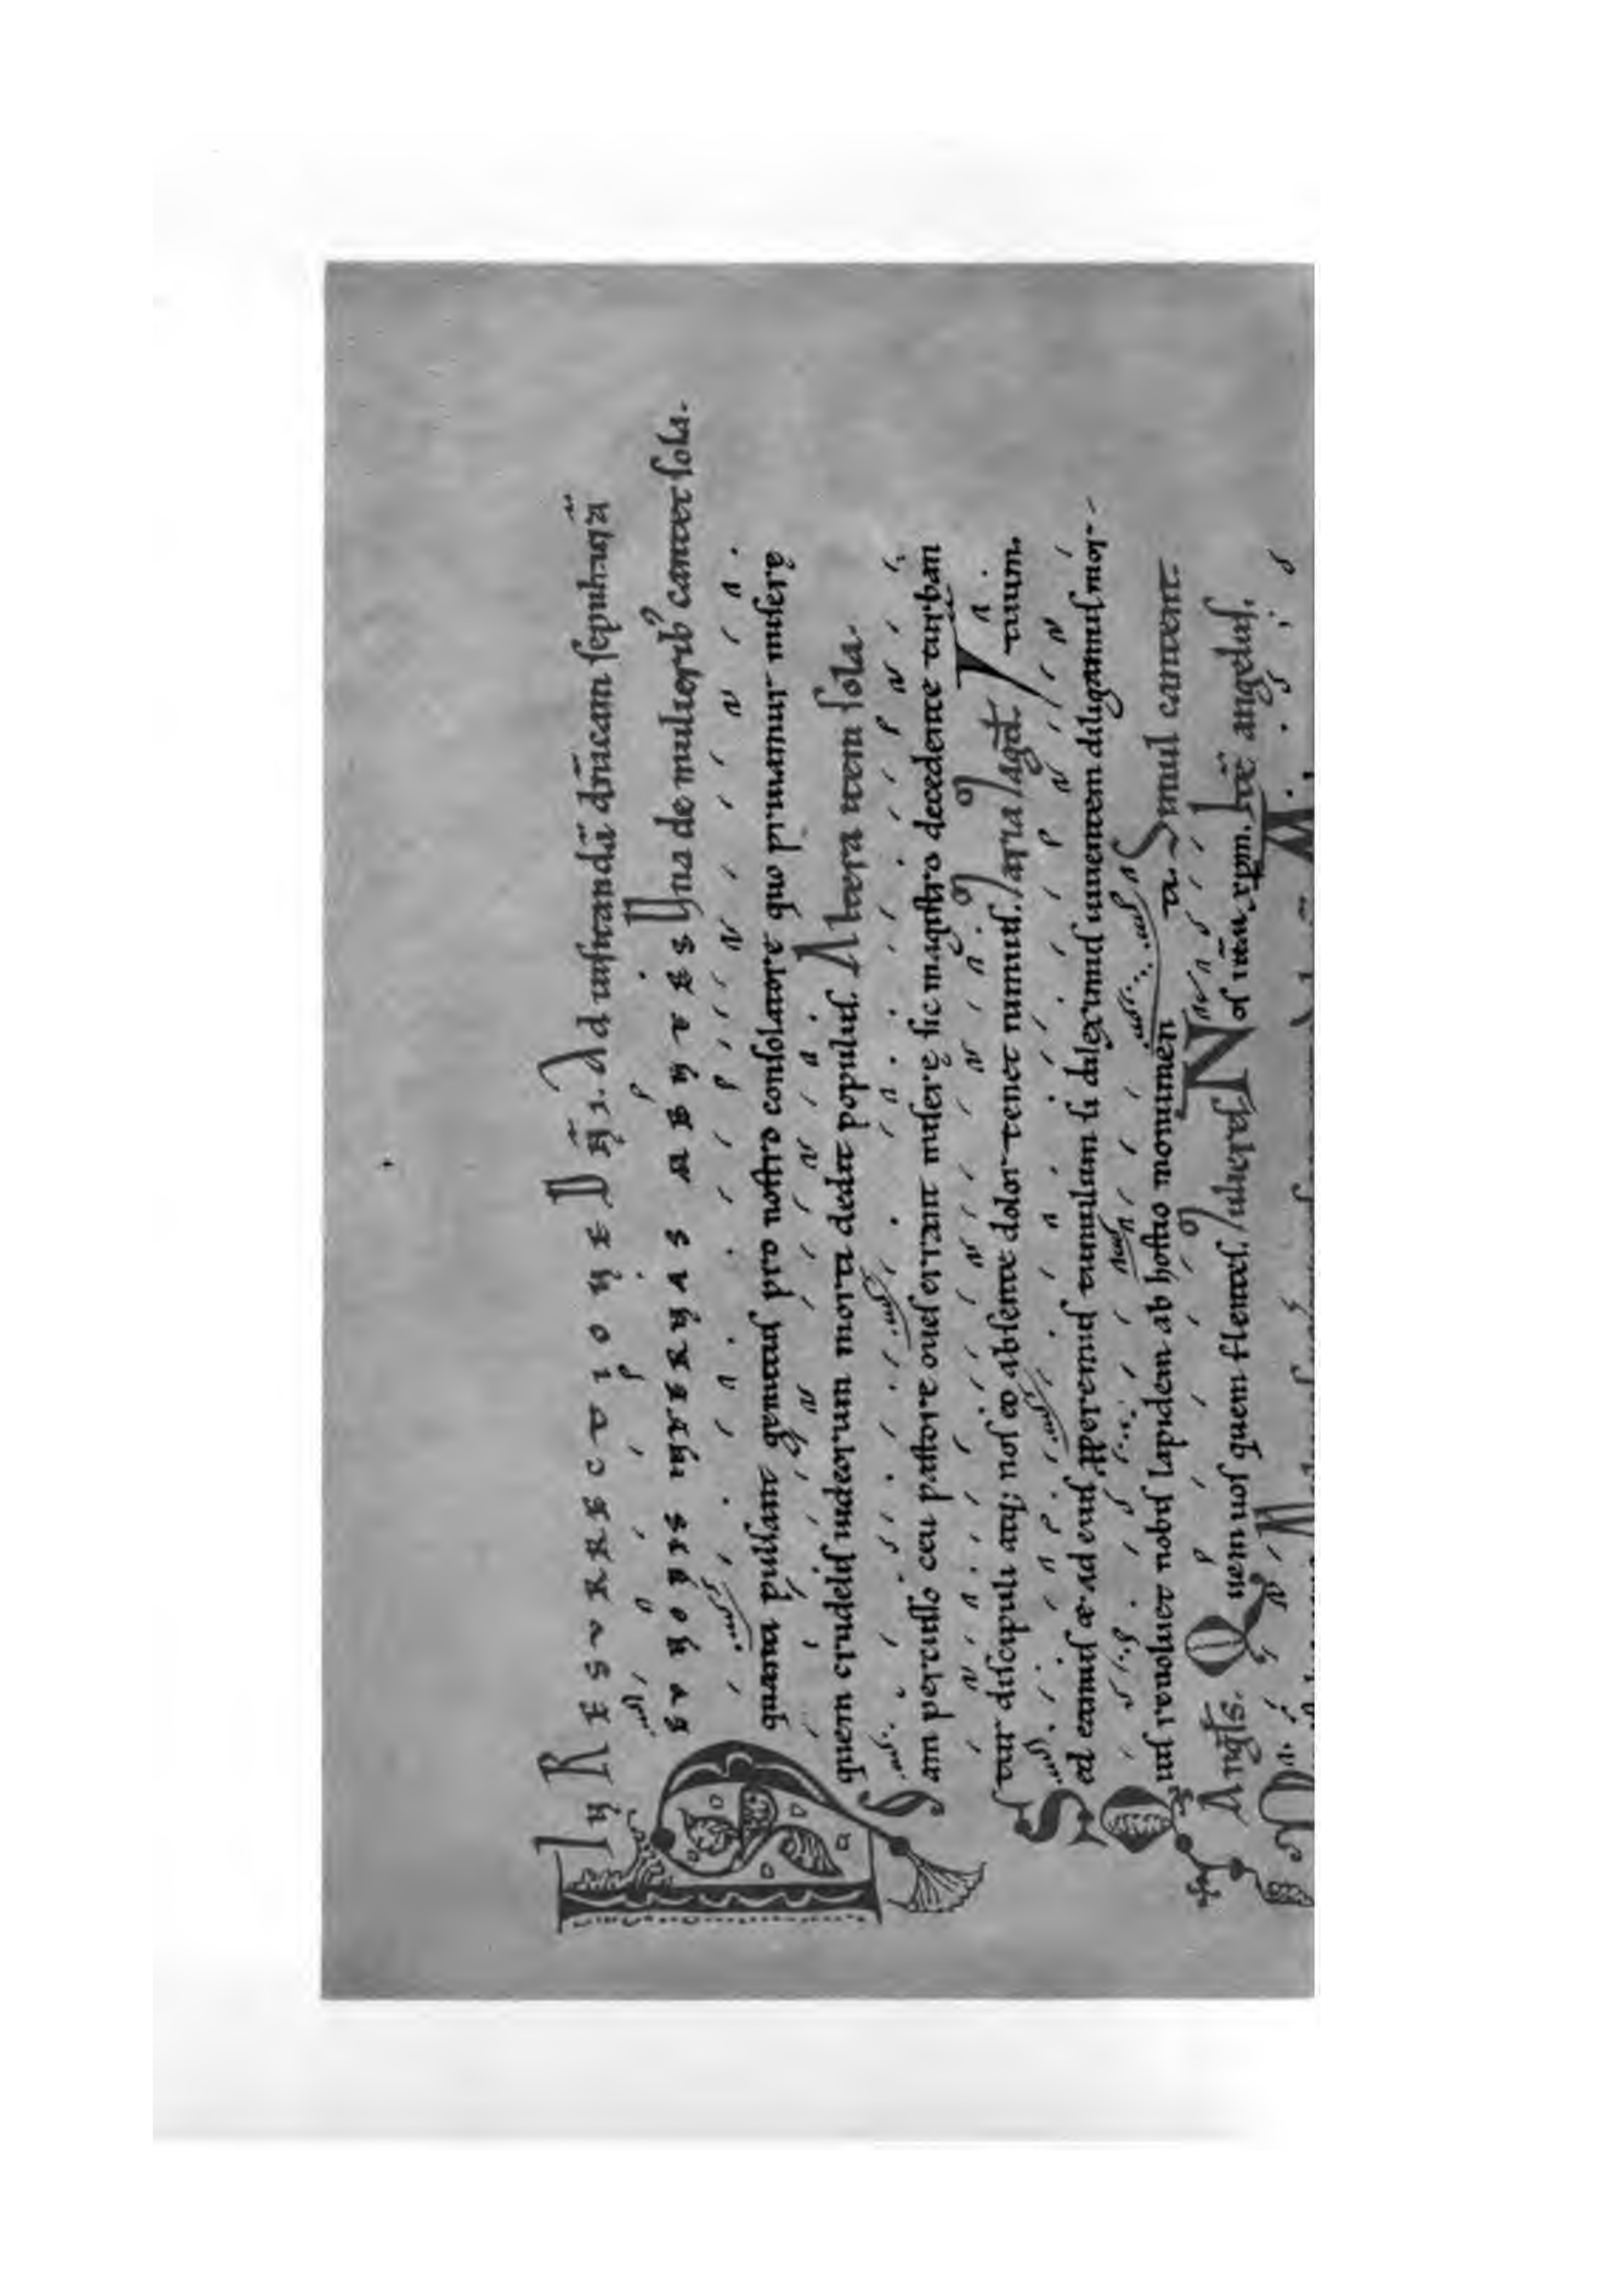 IN RESURRECTIONE DNĪ. Ad uisitandā dn̄icam sepulturā
HEU NOBIS INTERNAS MENTES Una de mulierib' cantet sola.
quanti pulsant gemitus pro nostro consolatore quo priuamur miserę
quem crudelis iudeorum morti dedit populus. Altera item sola.
Iam percusso ceu pastore oues errant miserę sic magistro decedente turban
tur discipuli atq; nos eo absente dolor tenet nimius. Maria Magd̄. tuum.
Sed eamus & ad eius properemus tumulum si dileximus uiuentem diligamus mor-
Quis reuoluet nobis lapidem ab hostio monumen ti. Simul cantent.
Angls. Quem uos quem flentes. Mulieres. Nos iesum xpm. Itē angelus.